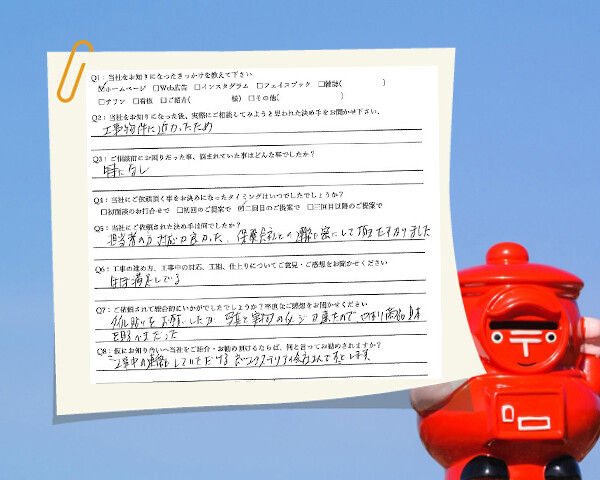 Q1：当社をお知りになったきっかけを教えて下さい
☑ホームページ □Web広告 □インスタグラム □フェイスブック □雑誌( )
□チラシ □看板 □ご紹介( 様) □その他( )
Q2：当社をお知りになった後、実際にご相談してみようと思われた決め手をお聞かせ下さい。
工事物件に近かったため
Q3：ご相談前にお困りだった事、悩まれていた事はどんな事でしたか？
特になし
Q4：当社にご依頼頂く事をお決めになったタイミングはいつでしたでしょうか？
□初回面談のお打合せで □初回のご提案で ☑二回目のご提案で □三回目以降のご提案で
Q5：当社にご依頼された決め手は何でしたか？
担当者の方の対応が良かった、保険会社との連絡も密にして頂き助かりました
Q6：工事の進め方、工事中の対応、工期、仕上りについてご意見・ご感想をお聞かせください
満足している
Q7：ご依頼されて総合的にいかがでしたでしょうか？率直なご感想をお聞かせください
タイル貼りをお願いしたが、写真と実物の
Q8：仮にお知り合いへ当社をご紹介・お勧め頂けるならば、何と言ってお勧めされますか？
工事中の連絡もしていただける エクステリア会社さんですとします
〒